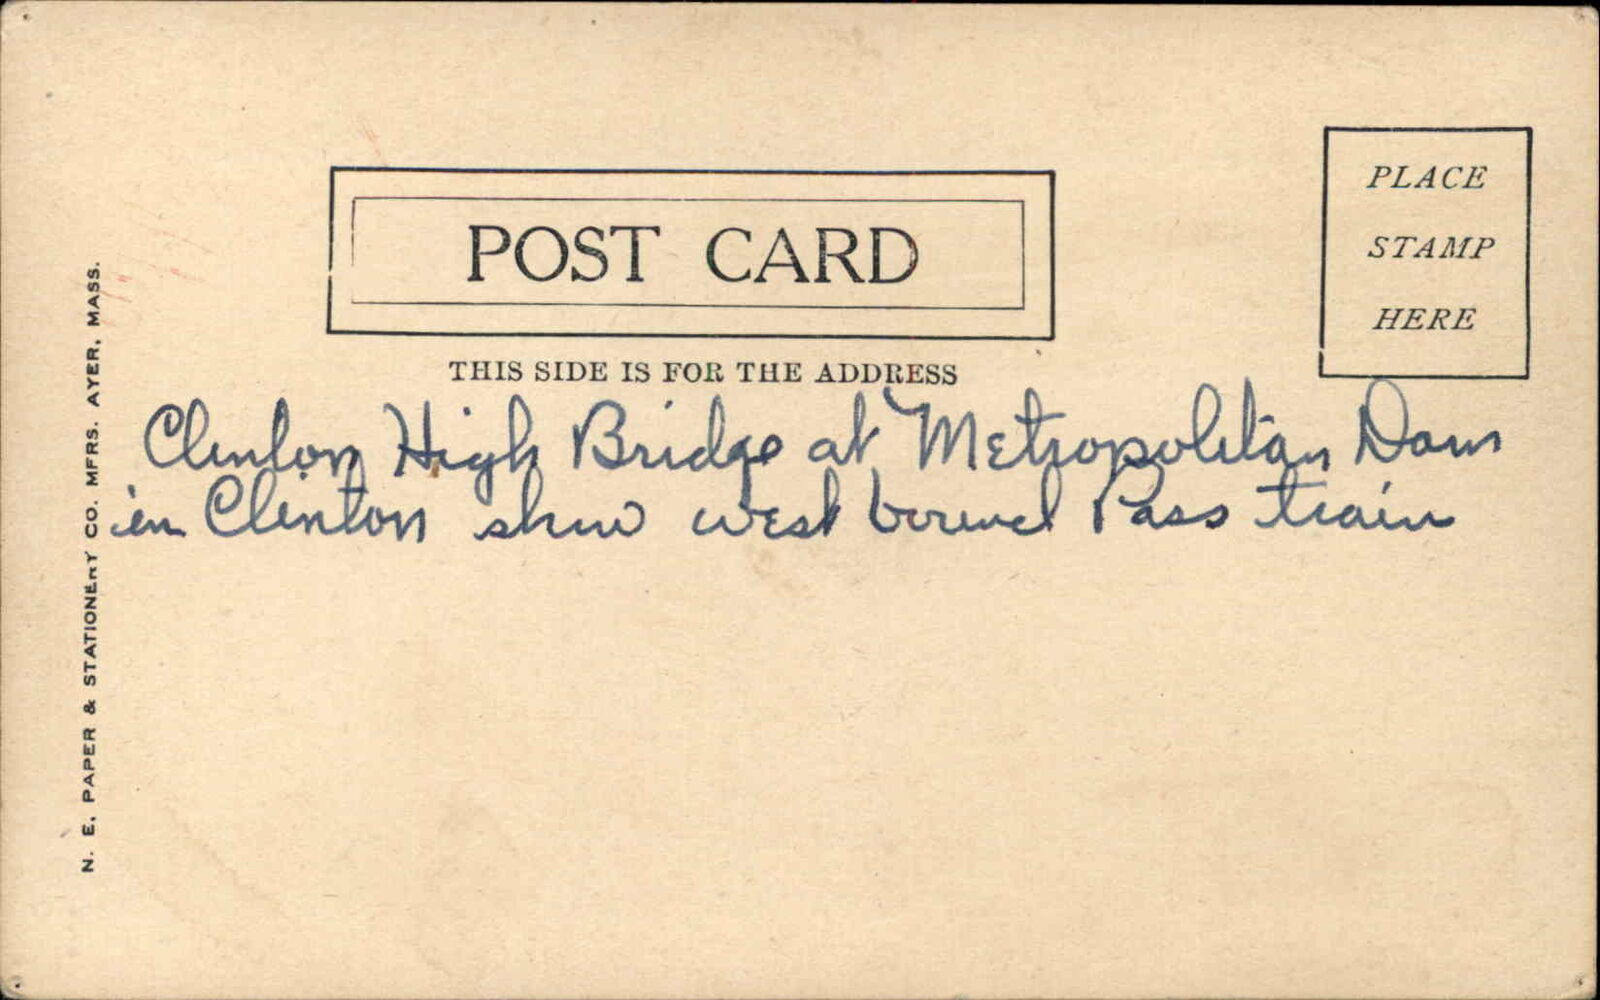 POST CARD
PLACE
STAMP
HERE
THIS SIDE IS FOR THE ADDRESS
Clinton High Bridge at Metropolitan Dam
in Clinton show west bound Pass train
N. E. PAPER & STATIONERY CO. MFRS. AYER, MASS.